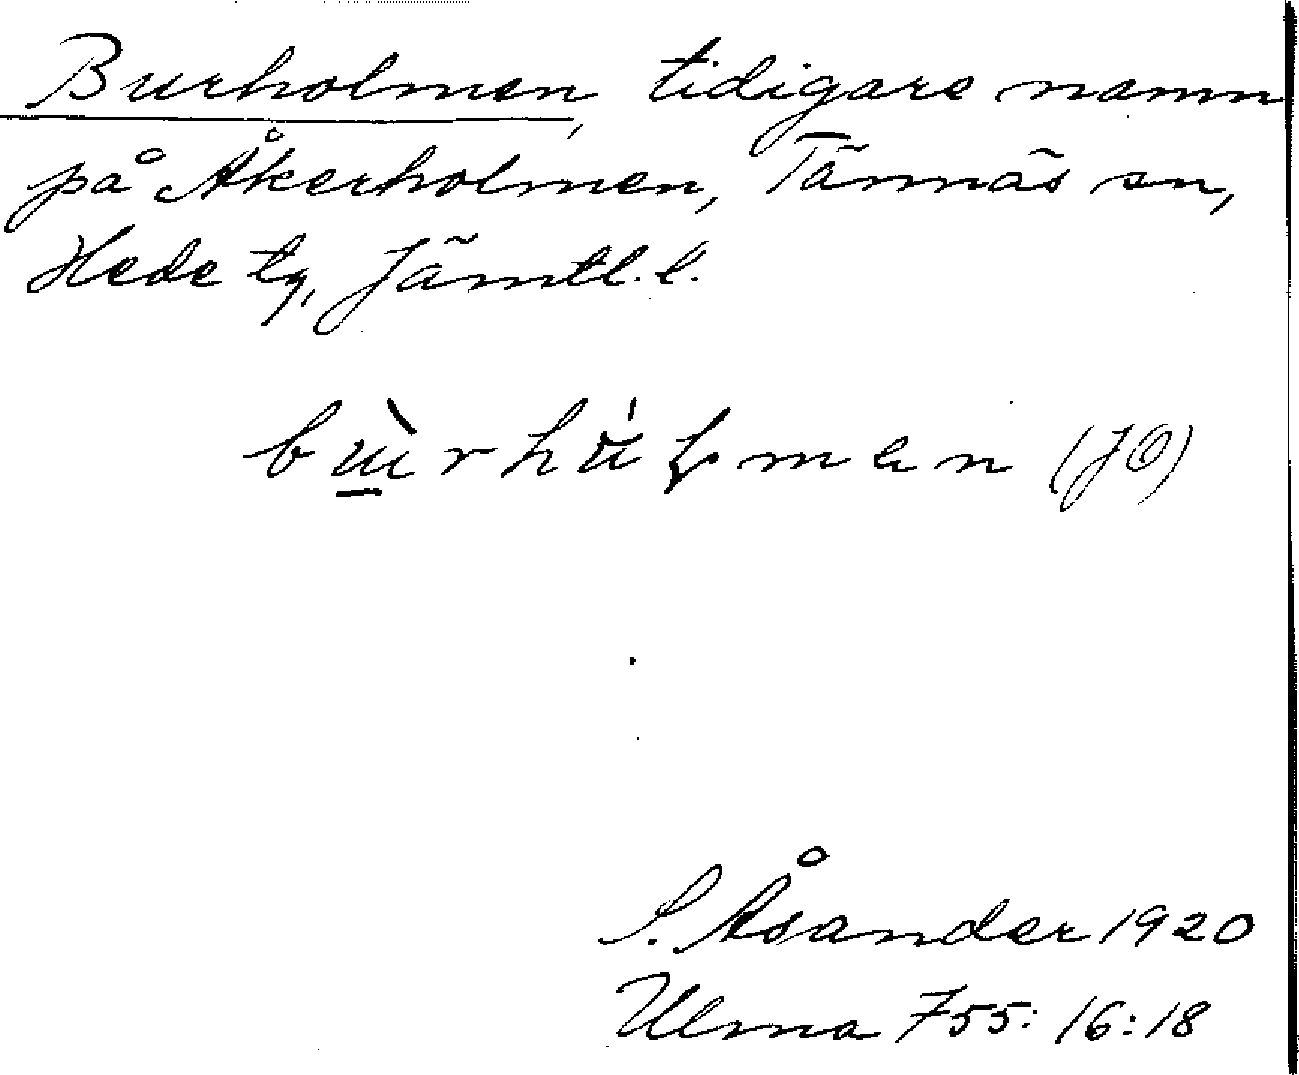 Burholmen, tidigare namn
på Åkerholmen, Tännäs sn,
Hede tg, Jämtl. l.
(JO)
S. Åsander 1920
Ulma 755: 16:18